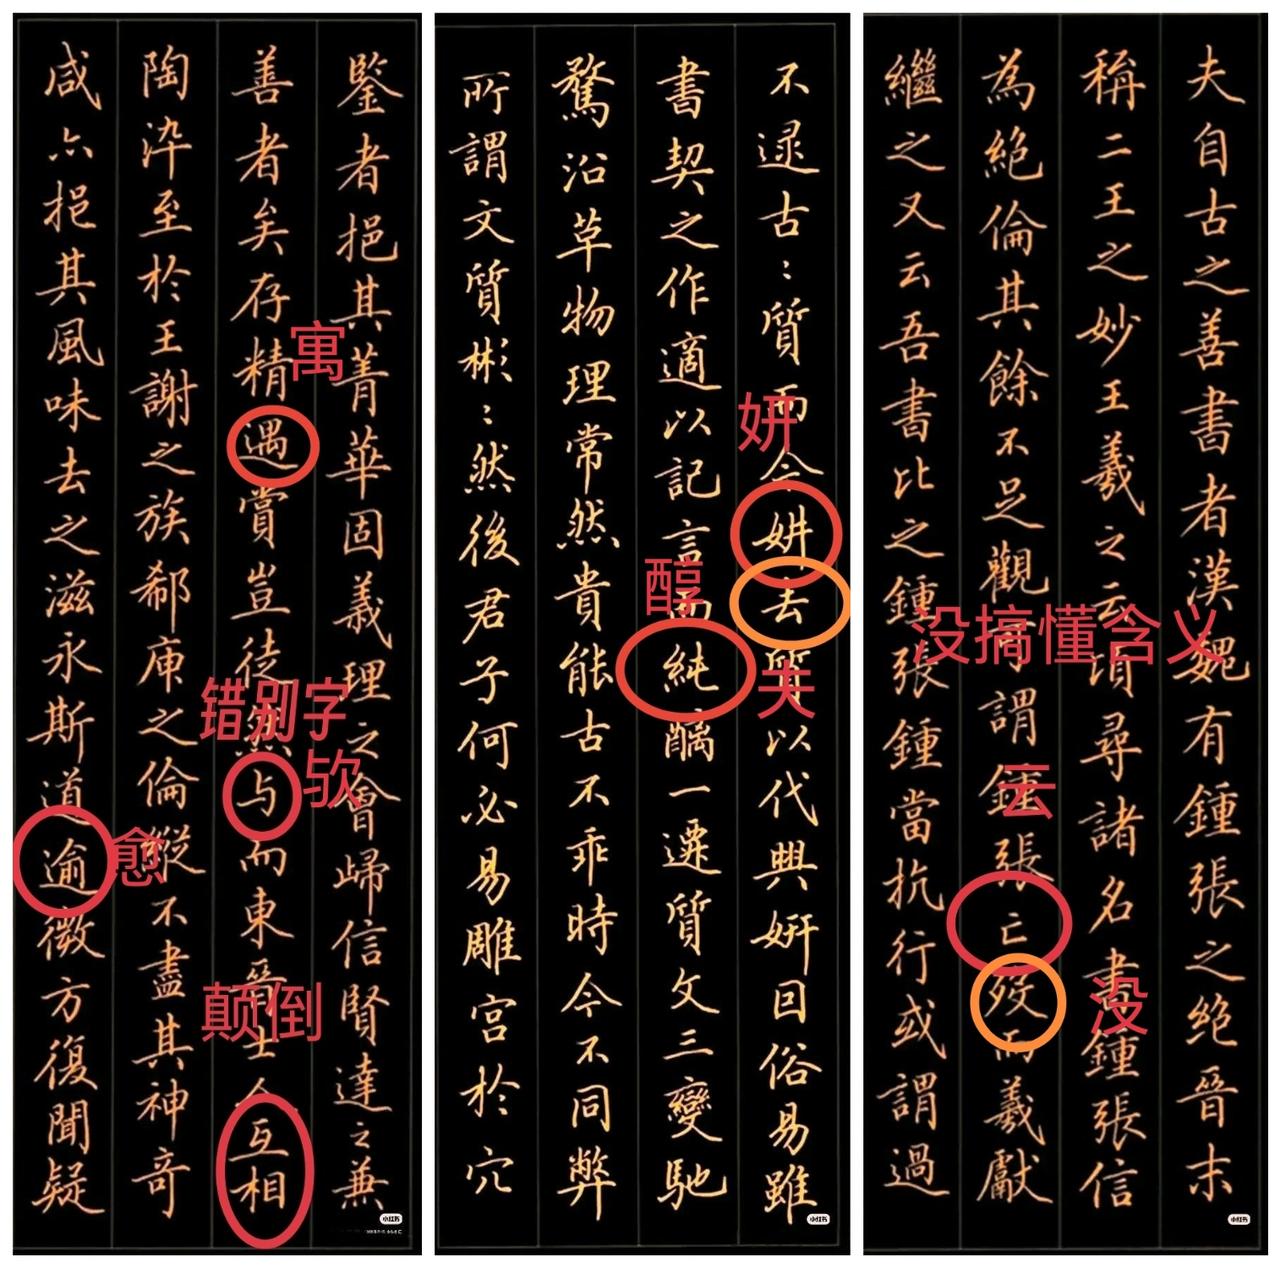 夫自古之善書者漢魏有鍾張之絕晉末
稱二王之妙王羲之云頃尋諸名書鍾張信
為絕倫其餘不足觀可謂鍾張亡歿而羲獻
繼之又云吾書比之鍾張鍾當抗行或謂過
没搞懂含义
云
没
不逮古:質而今姸去質以代興妍回俗易雖
書契之作適以記言而純醨一遷質文三變馳
騖沿草物理常然貴能古不乖時今不同弊
所謂文質彬:然後君子何必易雕宮於穴
妍
夫
醇
鑒者挹其菁華固義理之會歸信賢達之兼
善者矣存精遇賞豈徒然与而東晉士人互相
陶淬至於王謝之族郗庾之倫縱不盡其神奇
咸亦挹其風味去之滋永斯道逾微方復聞疑
寓
错别字
欤
愈
颠倒
小红书
小红书
小红书